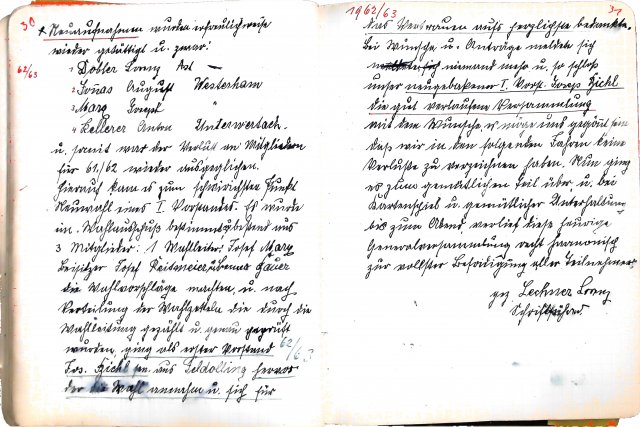 30
+ Neuaufnahmen wurden erfreulicherweise
wieder getätigt u. zwar:
62/63
1 Dober Lorenz Ast –
2 August Westerham
3 Marx Josef "
4 Kellerer Anton Unterwertach.
u. somit war der Verlust an Mitgliedern
für 61/62 wieder ausgeglichen.
Hierauf kam es zum schwierigsten Punkt
Neuwahl eines I. Vorstandes. Es wurde
ein Wahlausschuß bestimmt bestehend aus
3 Mitglieder: 1 Wahlleiter: Josef Marx
Beisitzer Josef
die Wahlvorschläge machten, u. nach
Verteilung der Wahlzetteln die durch die
Wahlleitung gezählt u. genau geprüft
wurden, ging als erster Vorstand
62/63
Jos. Zichl sen. aus Geldolling hervor
der die Wahl annahm u. sich für
1962/63
31
das Vertrauen aufs herzlichste bedankte.
Bei Wünsche u. Anträge meldete sich
niemand mehr u. so schloß
unser neugebackener I. Vorst. Josef Zichl
die gut verlaufene Versammlung
mit dem Wunsche, es möge uns gegönnt sein
daß wir in den folgenden Jahren keine
Verluste zu verzeichnen haben. Nun ging
es zum gemütlichen Teil über u. bei
Kartenspiel u. gemütlicher Unterhaltung
bis zum Abend verlief diese heurige
Generalversammlung recht harmonisch
zur vollsten Befriedigung aller Teilnehmer.
gez. Lechner Lorenz
Schriftführer